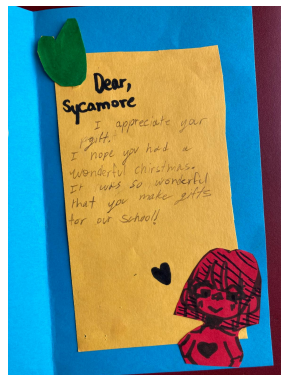 Dear,
Sycamore
I appreciate your
gift.
I hope you had a
wonderful Chirstmas.
It was so wonderful
that you make gifts
for our school!